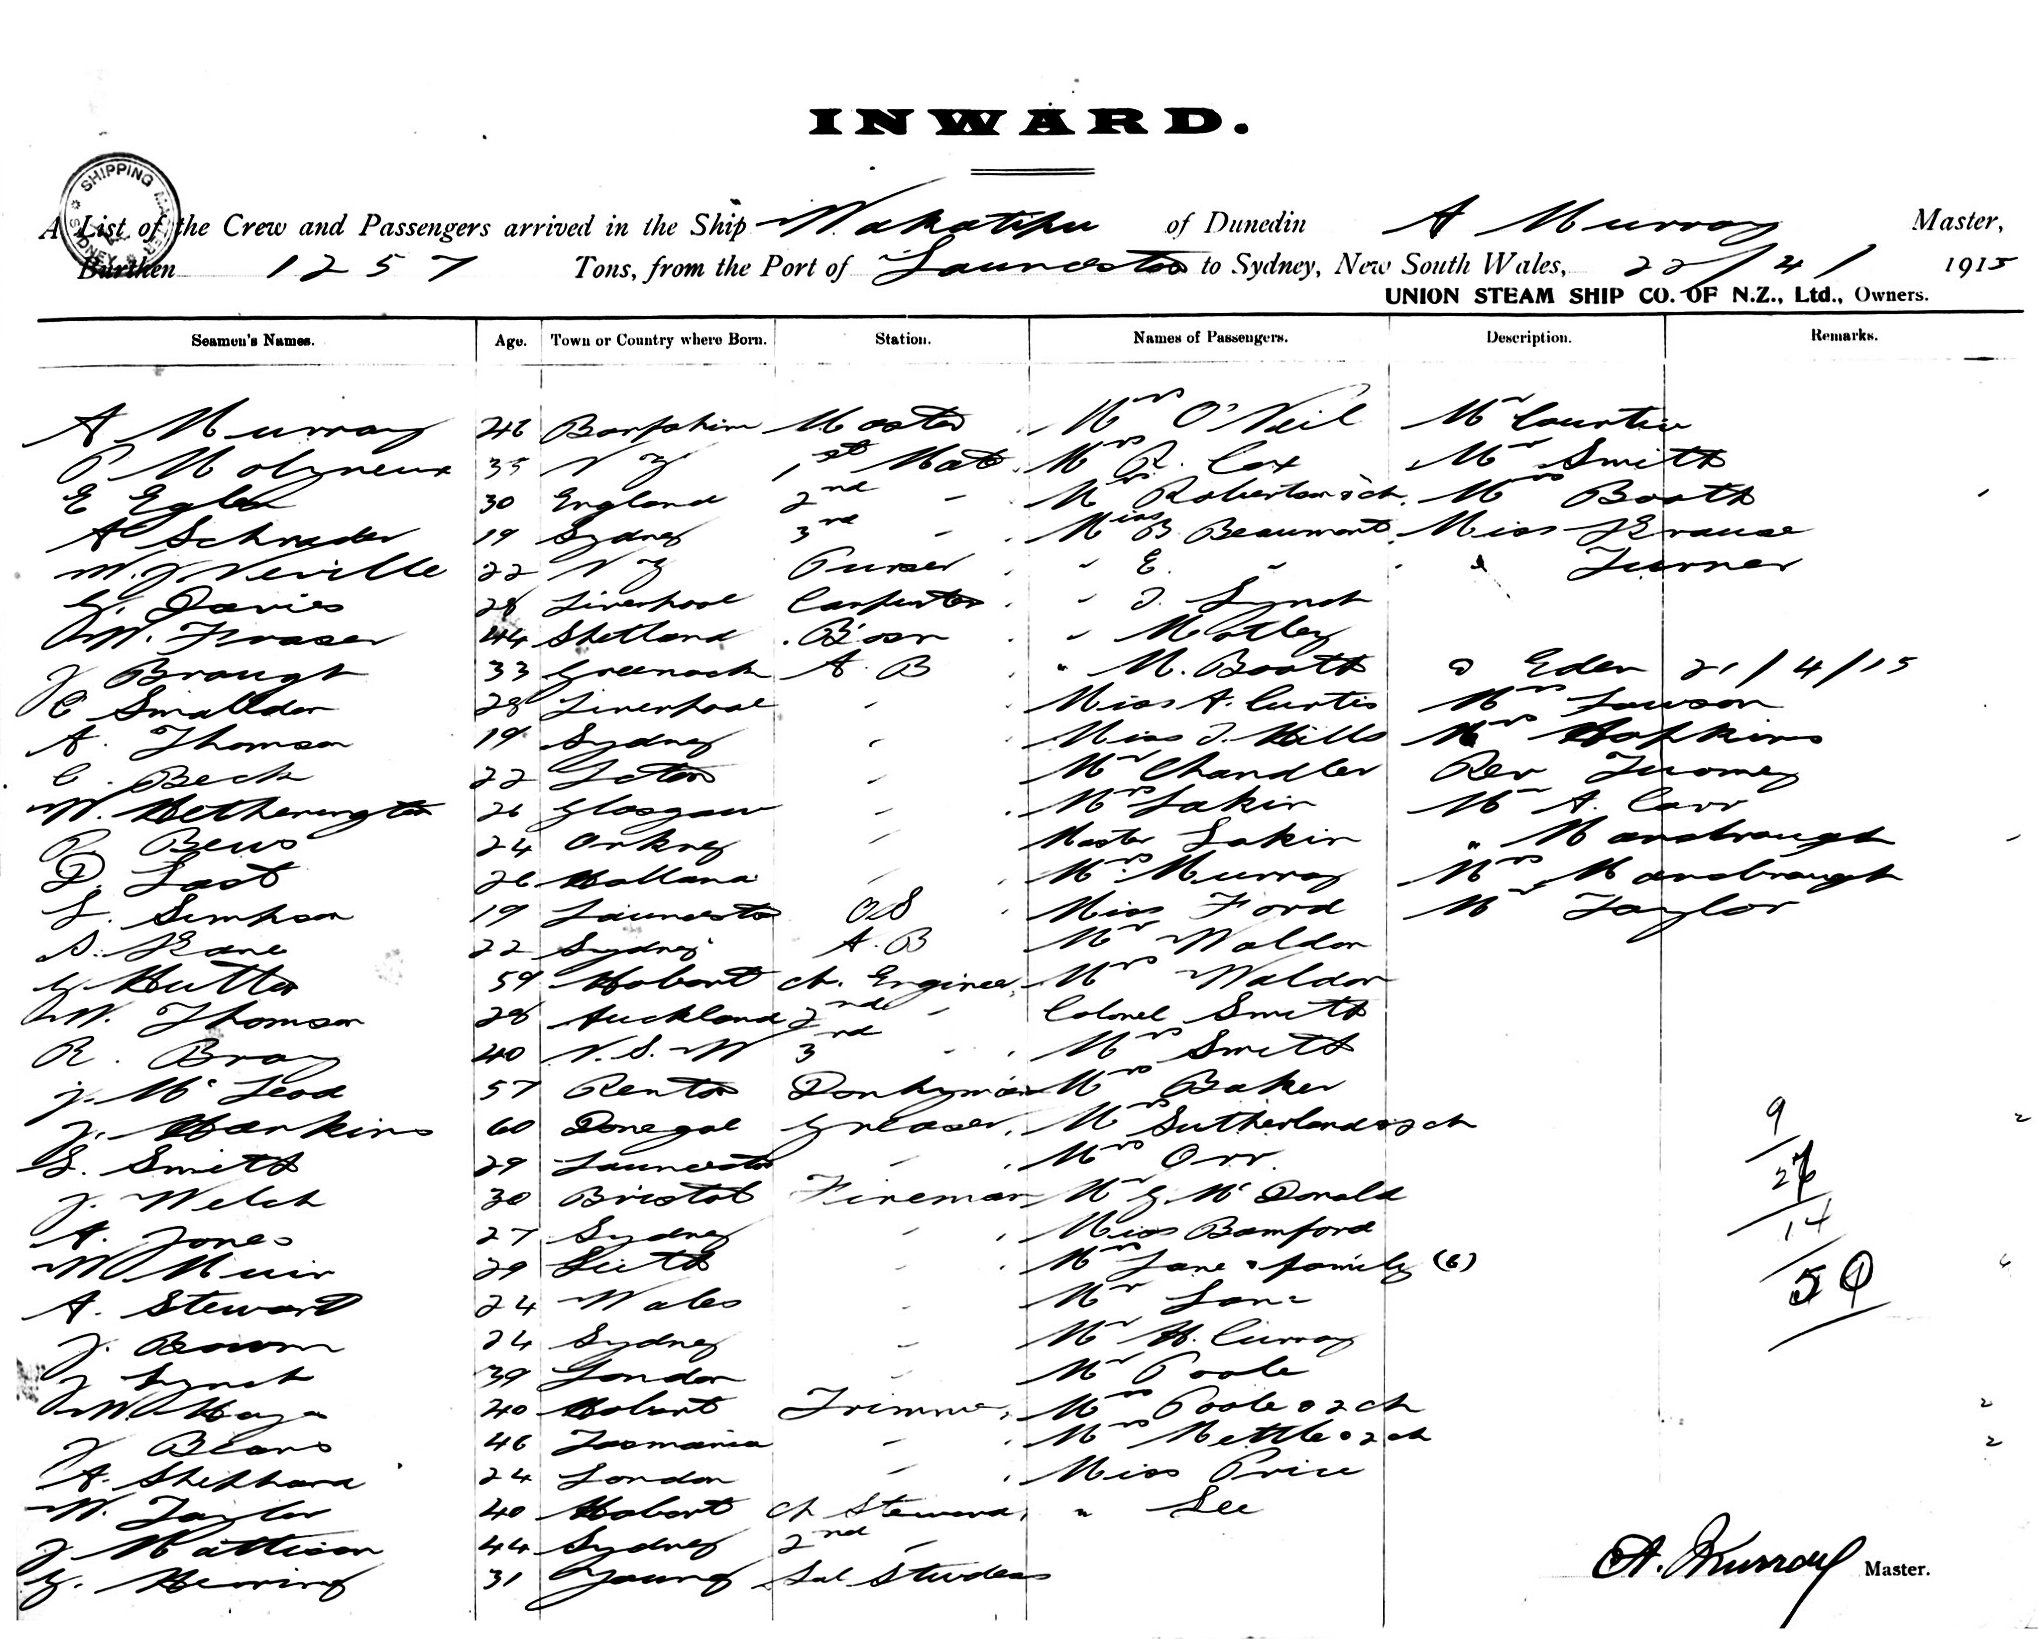 INWARD.
SHIPPING MASTER SYDNEY
A List of the Crew and Passengers arrived in the Ship Wakatipu of Dunedin A Murray Master,
Burthen 1257 Tons, from the Port of Launceston to Sydney, New South Wales, 22/4/1915
UNION STEAM SHIP CO. OF N.Z., Ltd., Owners.
Seamen's Names. Age. Town or Country where Born. Station. Names of Passengers. Description. Remarks.
A Murray 46 Master Mrs O'Neil Mr
P Molyneux 35 N Z 1st Mate Mrs R. Cox Mr Smith
E 30 England 2nd - Mrs Robertson & ch. Mrs Booth
A Schrader 19 Sydney 3rd - Miss B. Beaumont Miss Krause
W. J Neville 22 N Z Purser " E. " " Turner
G. Davies 28 Liverpool Carpenter " J. Lynch
W. Fraser 44 Shetland Bosn " Motley
J Braugh 33 Greenock A. B " M. Booth Eden 21/4/15
C Smalldon 28 Liverpool " Miss A. Curtis Mrs Lawson
A. Thomson 19 Sydney " Miss J. Hills Mrs Hopkins
C. Beck 22 " Mr Chandler Rev Tuomey
W. Hetherington 26 Glasgow " Mrs Lakin Mr A. Carr
R. Bews 24 Orkney " Master Lakin " Mansbraugh
D. Last 26 Holland " Mrs. Murray Mrs Mansbraugh
L. Simpson 19 Launceston OS Miss Ford Mr Taylor
D. Kane 22 Sydney A. B Mr Waldon
G Hutton 59 Hobart Ch. Engineer Mrs Waldon
W. Thomson 28 Auckland 2nd " Colonel Smith
R. Bray 40 N. S. W 3rd - Mrs Smith
J. McLeod 57 Renton Donkyman Mrs Baker
J. Harkins 60 Donegal Greaser Mrs Sutherland & 2 ch 2
L. Smith 29 Launceston " Mrs Orr
J. Welch 30 Bristol Fireman Mr G McDonald
A. Jones 27 Sydney " Miss Bamford
W Muir 29 Leith " Mrs Lane & family (6) 6
A. Stewart 24 Wales " Mr Lane
J. Brown 24 Sydney " Mr H. Curray
J Lynch 39 London " Mr Poole
W Hays 40 Hobart Trimmer Mrs Poole & 2 ch 2
J Beans 46 Tasmania " Mrs Nettle & 2 ch 2
A. Shephard 24 London " Miss Price
W. Taylor 40 Hobart Ch Steward " Lee
J Mattison 44 Sydney 2nd -
G. Herring 31 Young Sal Stwdess
9
14
50
A. Murray Master.